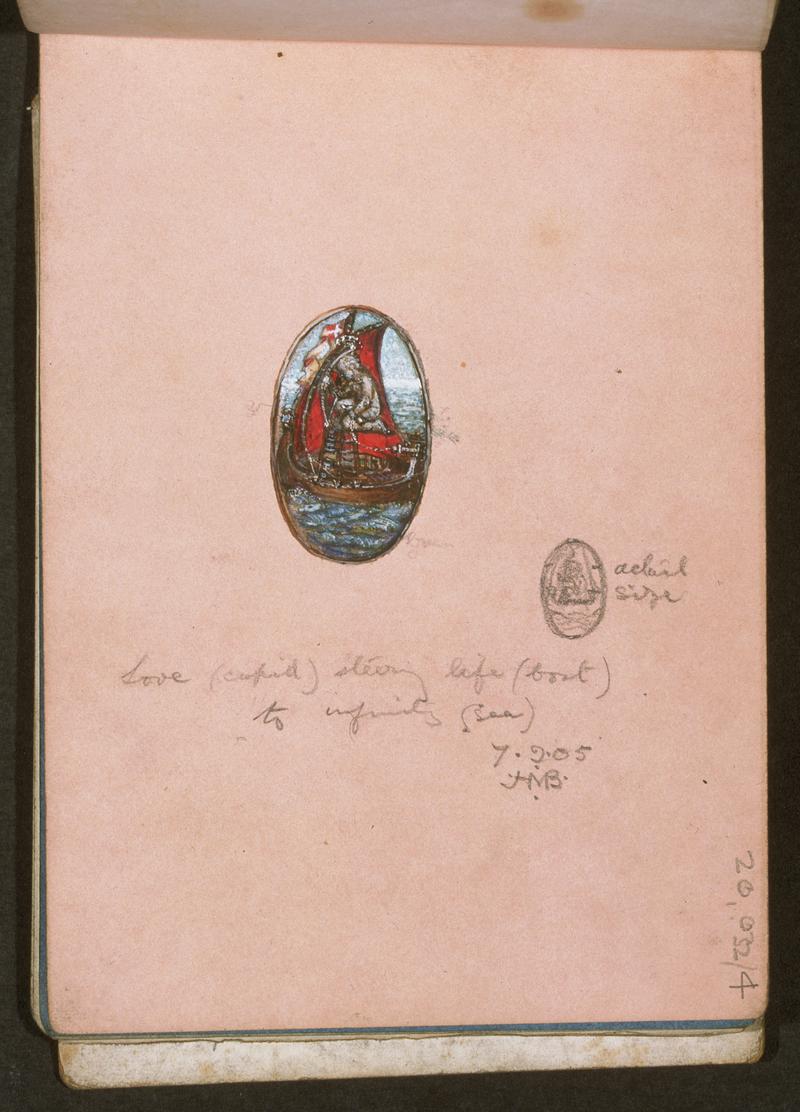 actual
size
Love (cupid) steering life (boat)
to infinity (sea)
7.9.05
HMB.
20,032/4